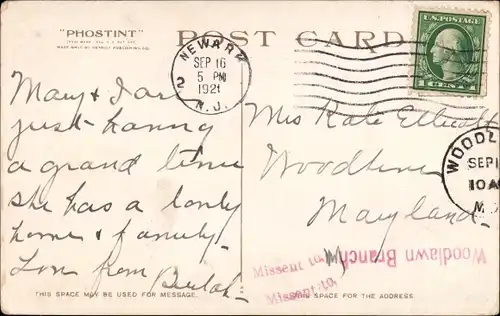 "PHOSTINT"
POST CARD
NEWARK
SEP 16
5 PM
1921
N.J.
2
U.S. POSTAGE
Mary & I are
just having
a grand time
she has a lovely
home & family.
Love from Beulah
Mrs Kate Ellicott
Woodbine
Maryland
WOODL
SEP 1
10 A
M
Woodlawn Branch
Missent to
Missent to
THIS SPACE MAY BE USED FOR MESSAGE.
THIS SPACE FOR THE ADDRESS